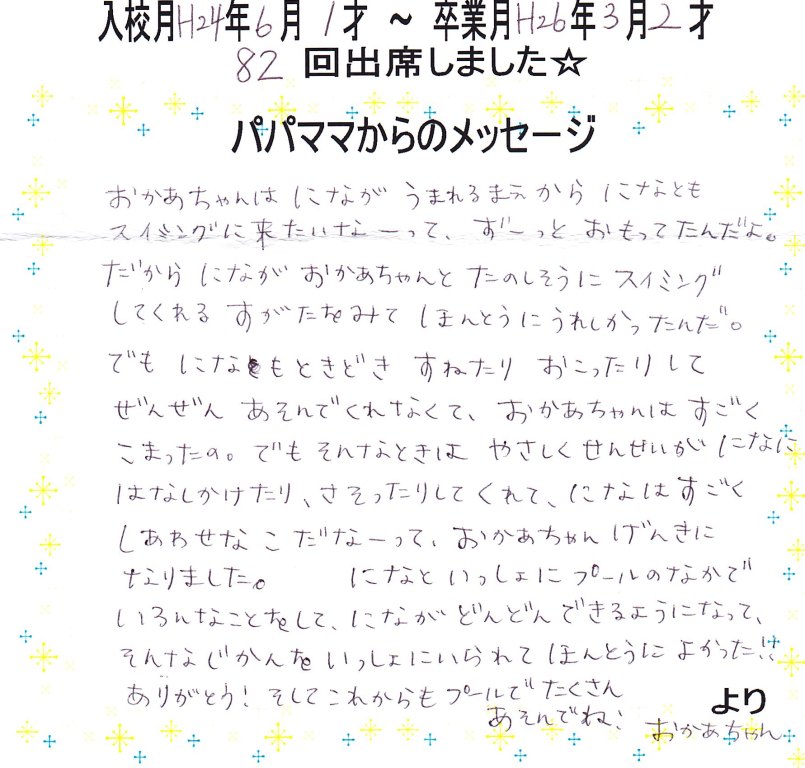 入校月H24年6月1才～卒業月H26年3月2才
82回出席しました☆
パパママからのメッセージ
おかあちゃんは になが うまれるまえから になとも
スイミングに来たいなーって、ずーっと おもってたんだよ。
だから になが おかあちゃんと たのしそうに スイミング
してくれる すがたをみて ほんとうにうれしかったんだ。
でも になもときどき すねたり おこったりして
ぜんぜん あそんでくれなくて、おかあちゃんは すごく
こまったの。でも そんなときは やさしく せんせいが になに
はなしかけたり、さそったりしてくれて、になはすごく
しあわせな こ だなーって、おかあちゃん げんきに
なりました。 になと いっしょに プールのなかで
いろんなことをして、になが どんどん できるようになって、
そんなじかんを いっしょにいられて ほんとうに よかった!!
ありがとう! そしてこれからも プールで たくさん
あそんでね!
より
おかあちゃん